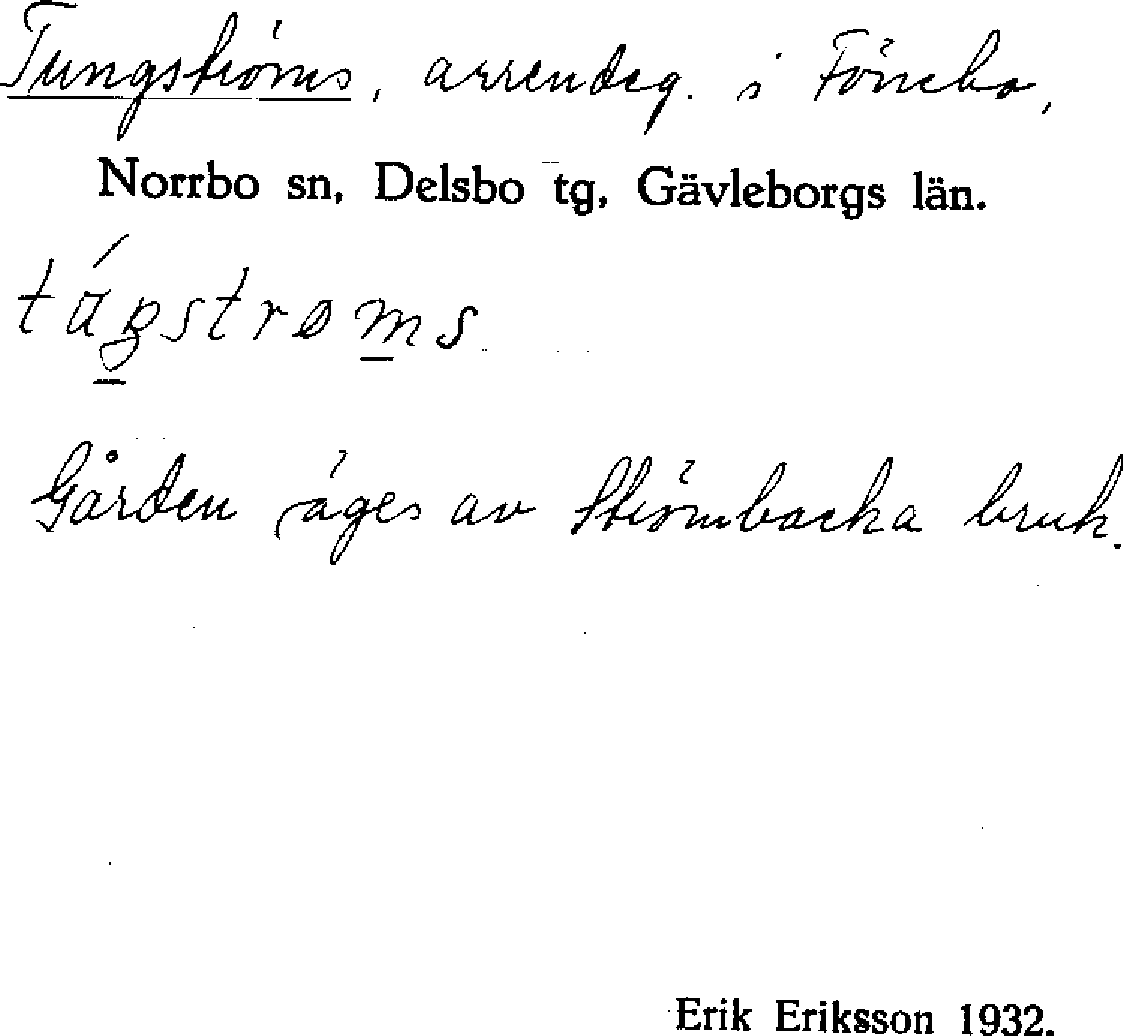 Tungströms, arrendeg. i Fönebo,
Norrbo sn, Delsbo tg, Gävleborgs län.
Gården äges av Strömbacka bruk.
Erik Eriksson 1932.